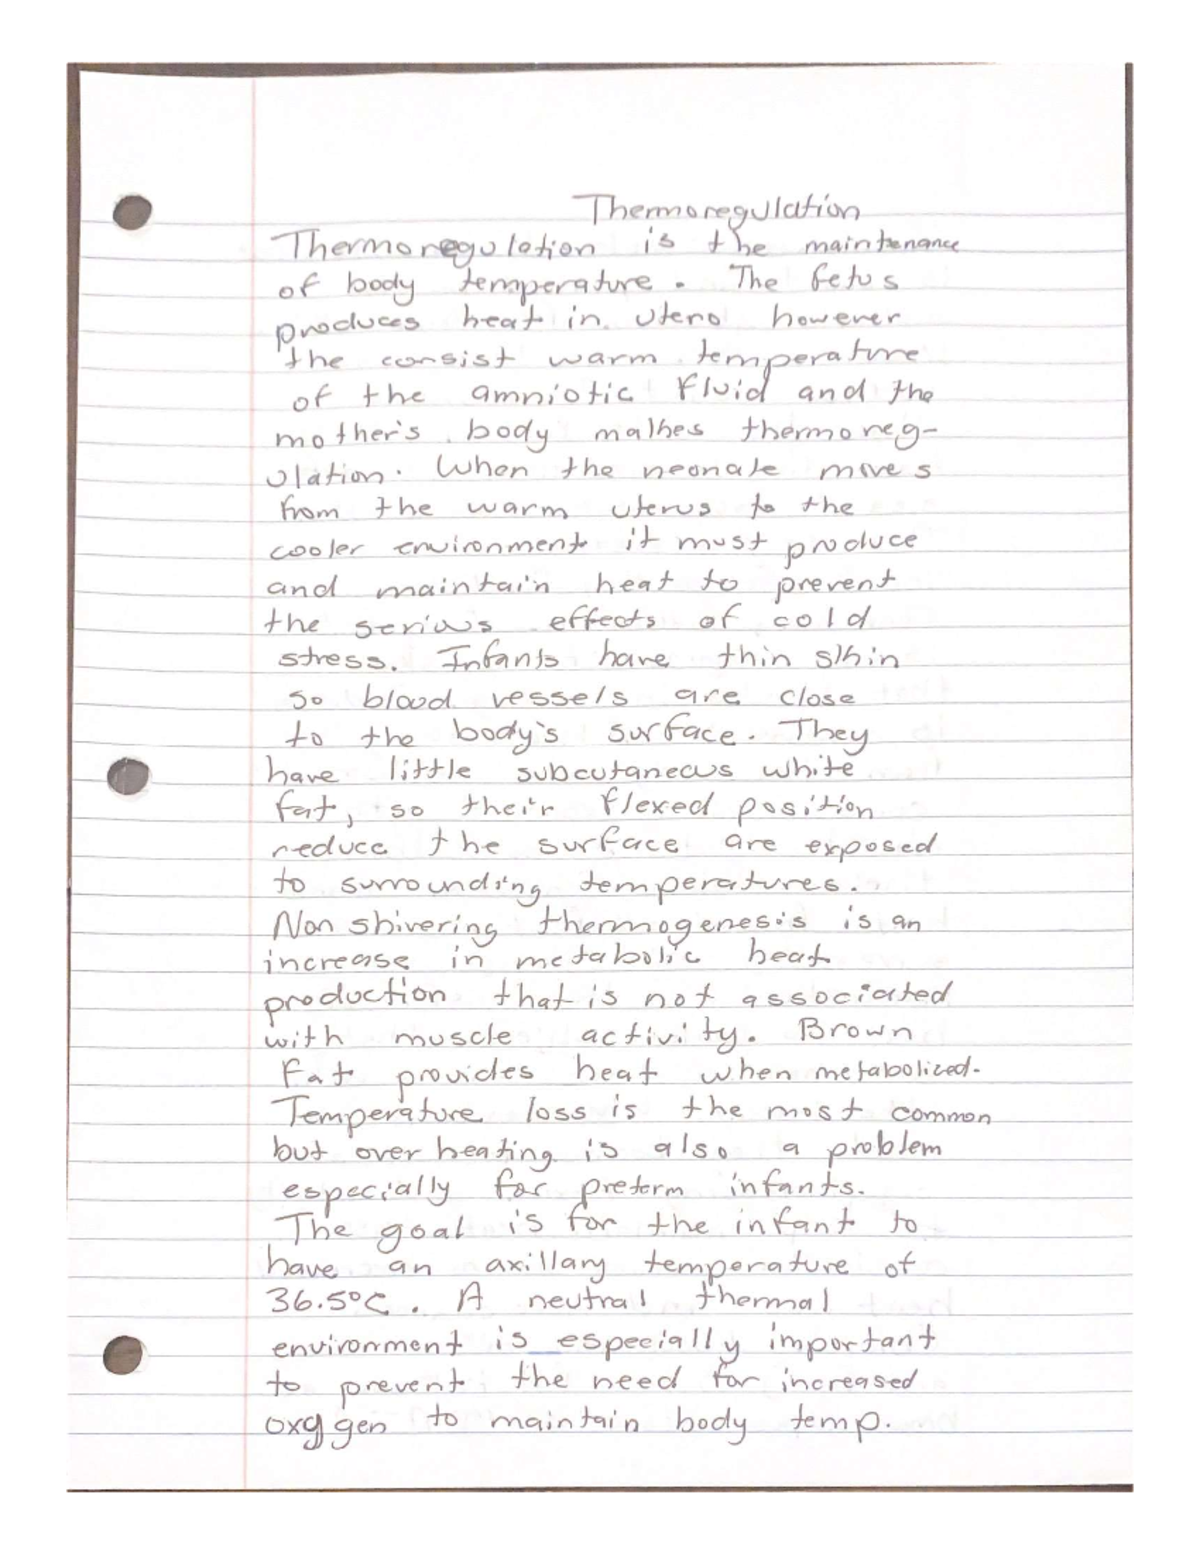 Thermoregulation
Thermoregulation is the maintenance
of body temperature. The fetus
produces heat in utero however
the consist warm temperature
of the amniotic fluid and the
mother's body malhes thermoreg-
ulation. When the neonate moves
from the warm uterus to the
cooler environment it must produce
and maintain heat to prevent
the serious effects of cold
stress. Infants have thin skin
so blood vessels are close
to the body's surface. They
have little subcutaneous white
fat, so their flexed position
reduce the surface are exposed
to surrounding temperatures.
Non shivering thermogenesis is an
increase in metabolic heat
production that is not associated
with muscle activity. Brown
Fat provides heat when metabolized.
Temperature loss is the most common
but over heating is also a problem
especially for preterm infants.
The goal is for the infant to
have an axillary temperature of
36.5°C. A neutral thermal
environment is especially important
to prevent the need for increased
oxygen to maintain body temp.